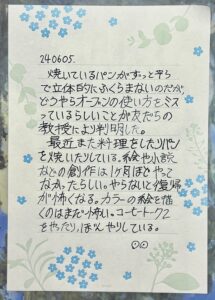 240605.
焼いているパンがずっと平ら
で立体的にふくらまないのだが、
どうやらオーブンの使い方をミス
っているらしいことが友だちの
教授により判明した。
最近また料理をしたりパン
を焼いたりしている。絵や小説
などの創作は1ヶ月ほどやって
なかったらしい。やらないと復帰
が怖くなる。カラーの絵を描
くのはまだ怖い。コーヒートーク2
をやったり、ぼんやりしている。